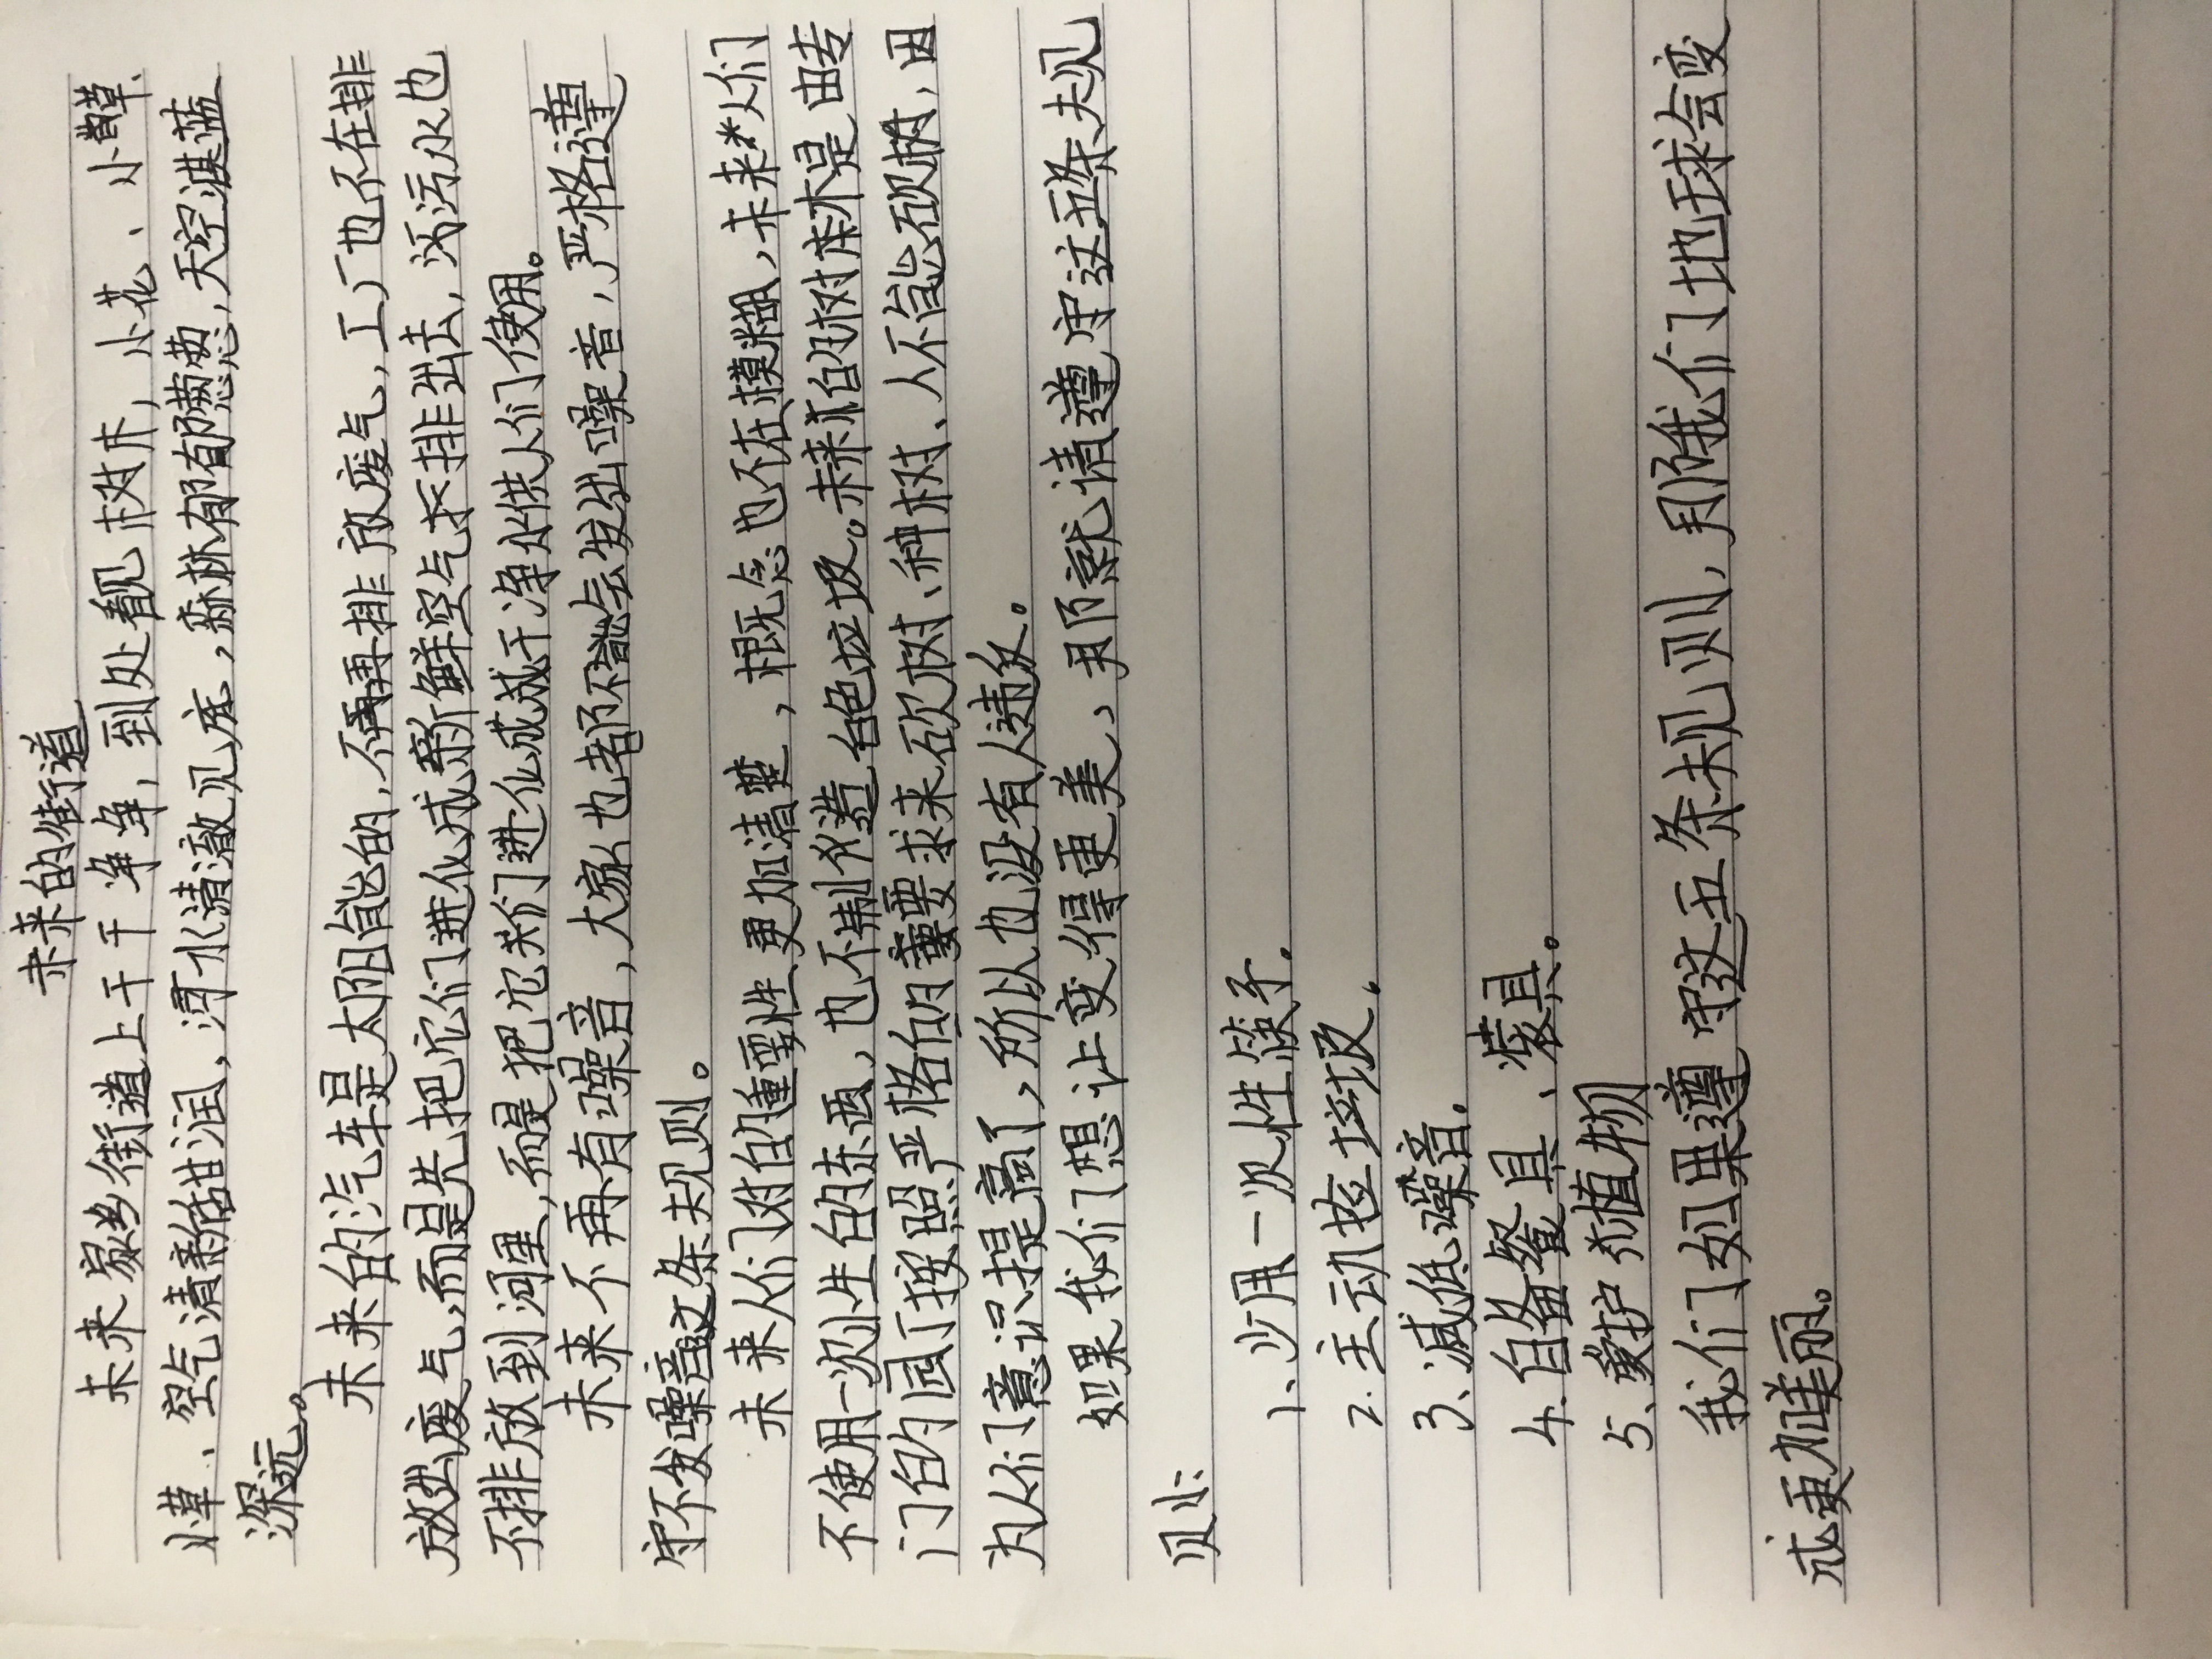 未来的街道
未来家乡街道上干干净净，到处看见树木，小花、小草、
小草、空气清新甜润，河水清澈见底，森林郁郁葱葱，天空湛蓝
深远。
未来的汽车是太阳能的，不再排放废气，工厂也不在排
放出废气，而是先把它们进化成新鲜空气在排出去，污水也
不排放到河里，而是把它们进化成干净水供人们使用。
未来不再有噪音，大家也都不会发出噪音，严格遵
守不发噪音这条规则。
未来人们对的重要性更加清楚，概念也不在模糊，未来人们
不使用一次性的东西，也不制造白色垃圾。未来的树木是由专
门的园丁按照严格的要求来砍树、种树、人不能砍树，因
为人们意识提高了，所以也没有人违反。
如果我们想让变得更美，那就请遵守这五条规
则：
1、少用一次性筷子。
2.主动捡垃圾。
3、减低噪音。
4.自备餐具、袋具。
5、爱护植物
我们如果遵守这五条规则，那我们地球会变
成更加美丽。